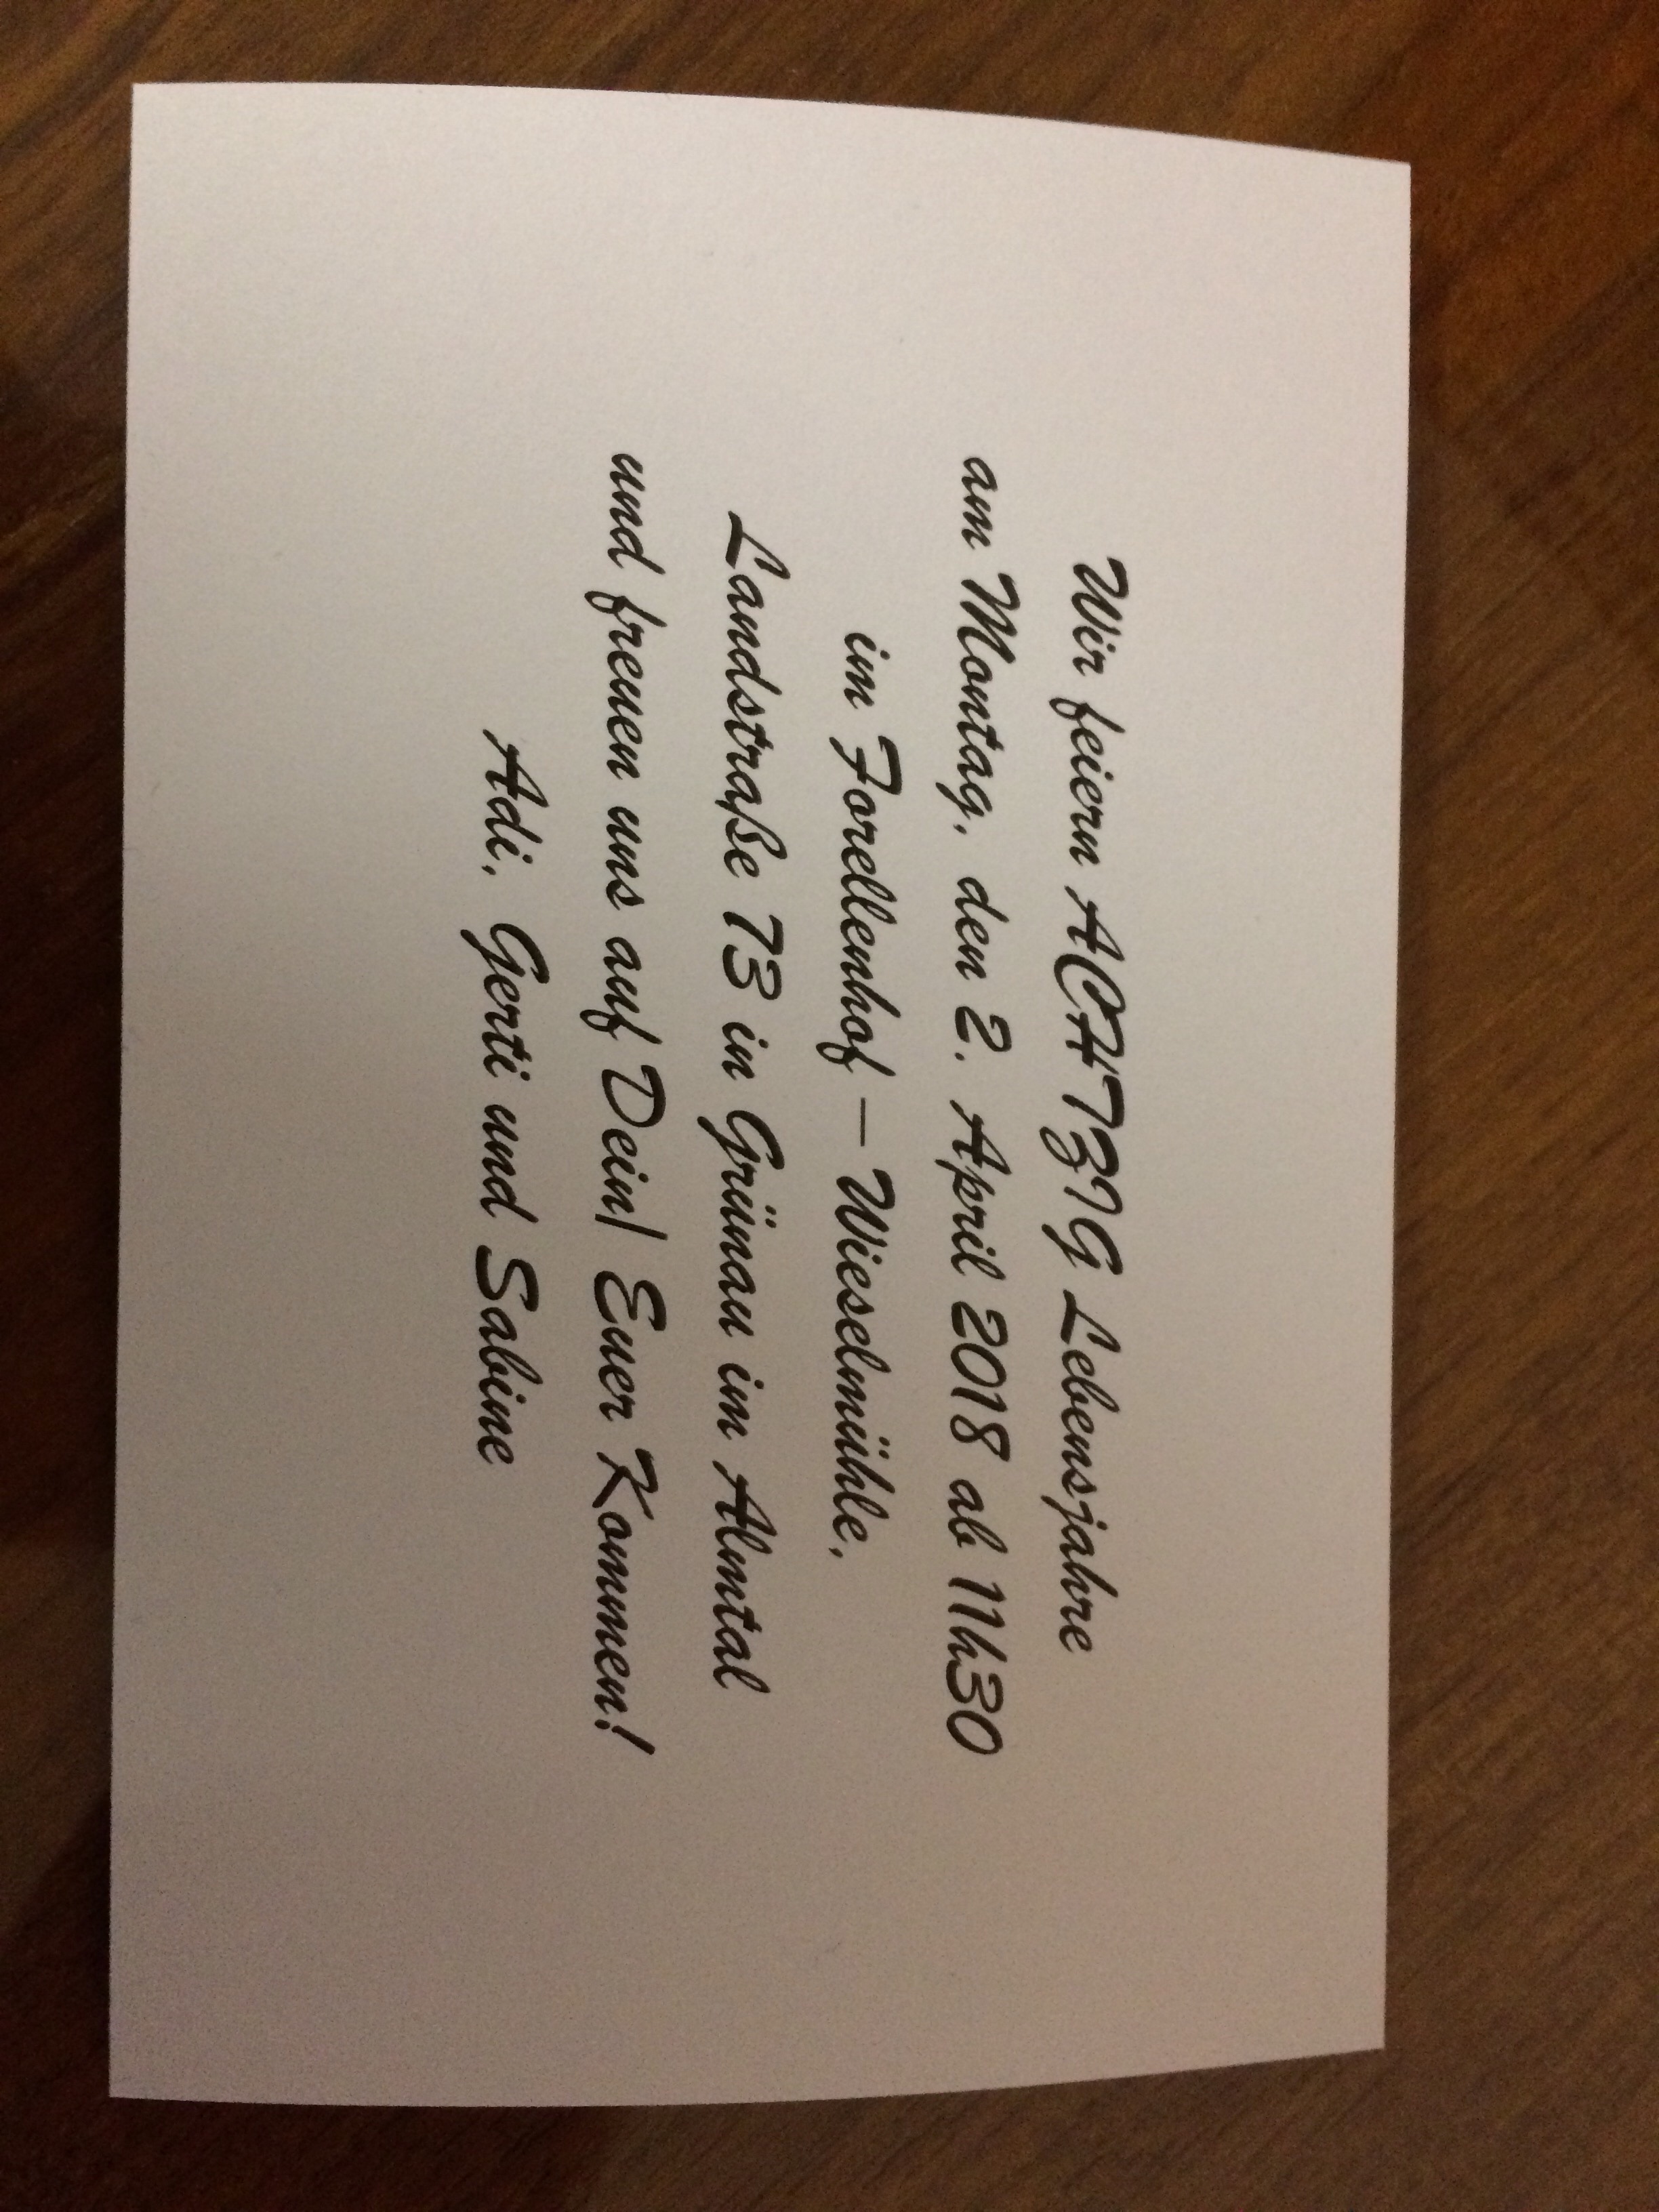 Wir feiern ACHTZIG Lebensjahre
am Montag, den 2. April 2018 ab 11h30
im Forellenhof – Wieselmühle,
Landstraße 73 in Grünau im Almtal
und freuen uns auf Dein/ Euer Kommen!
Adi, Gerti und Sabine